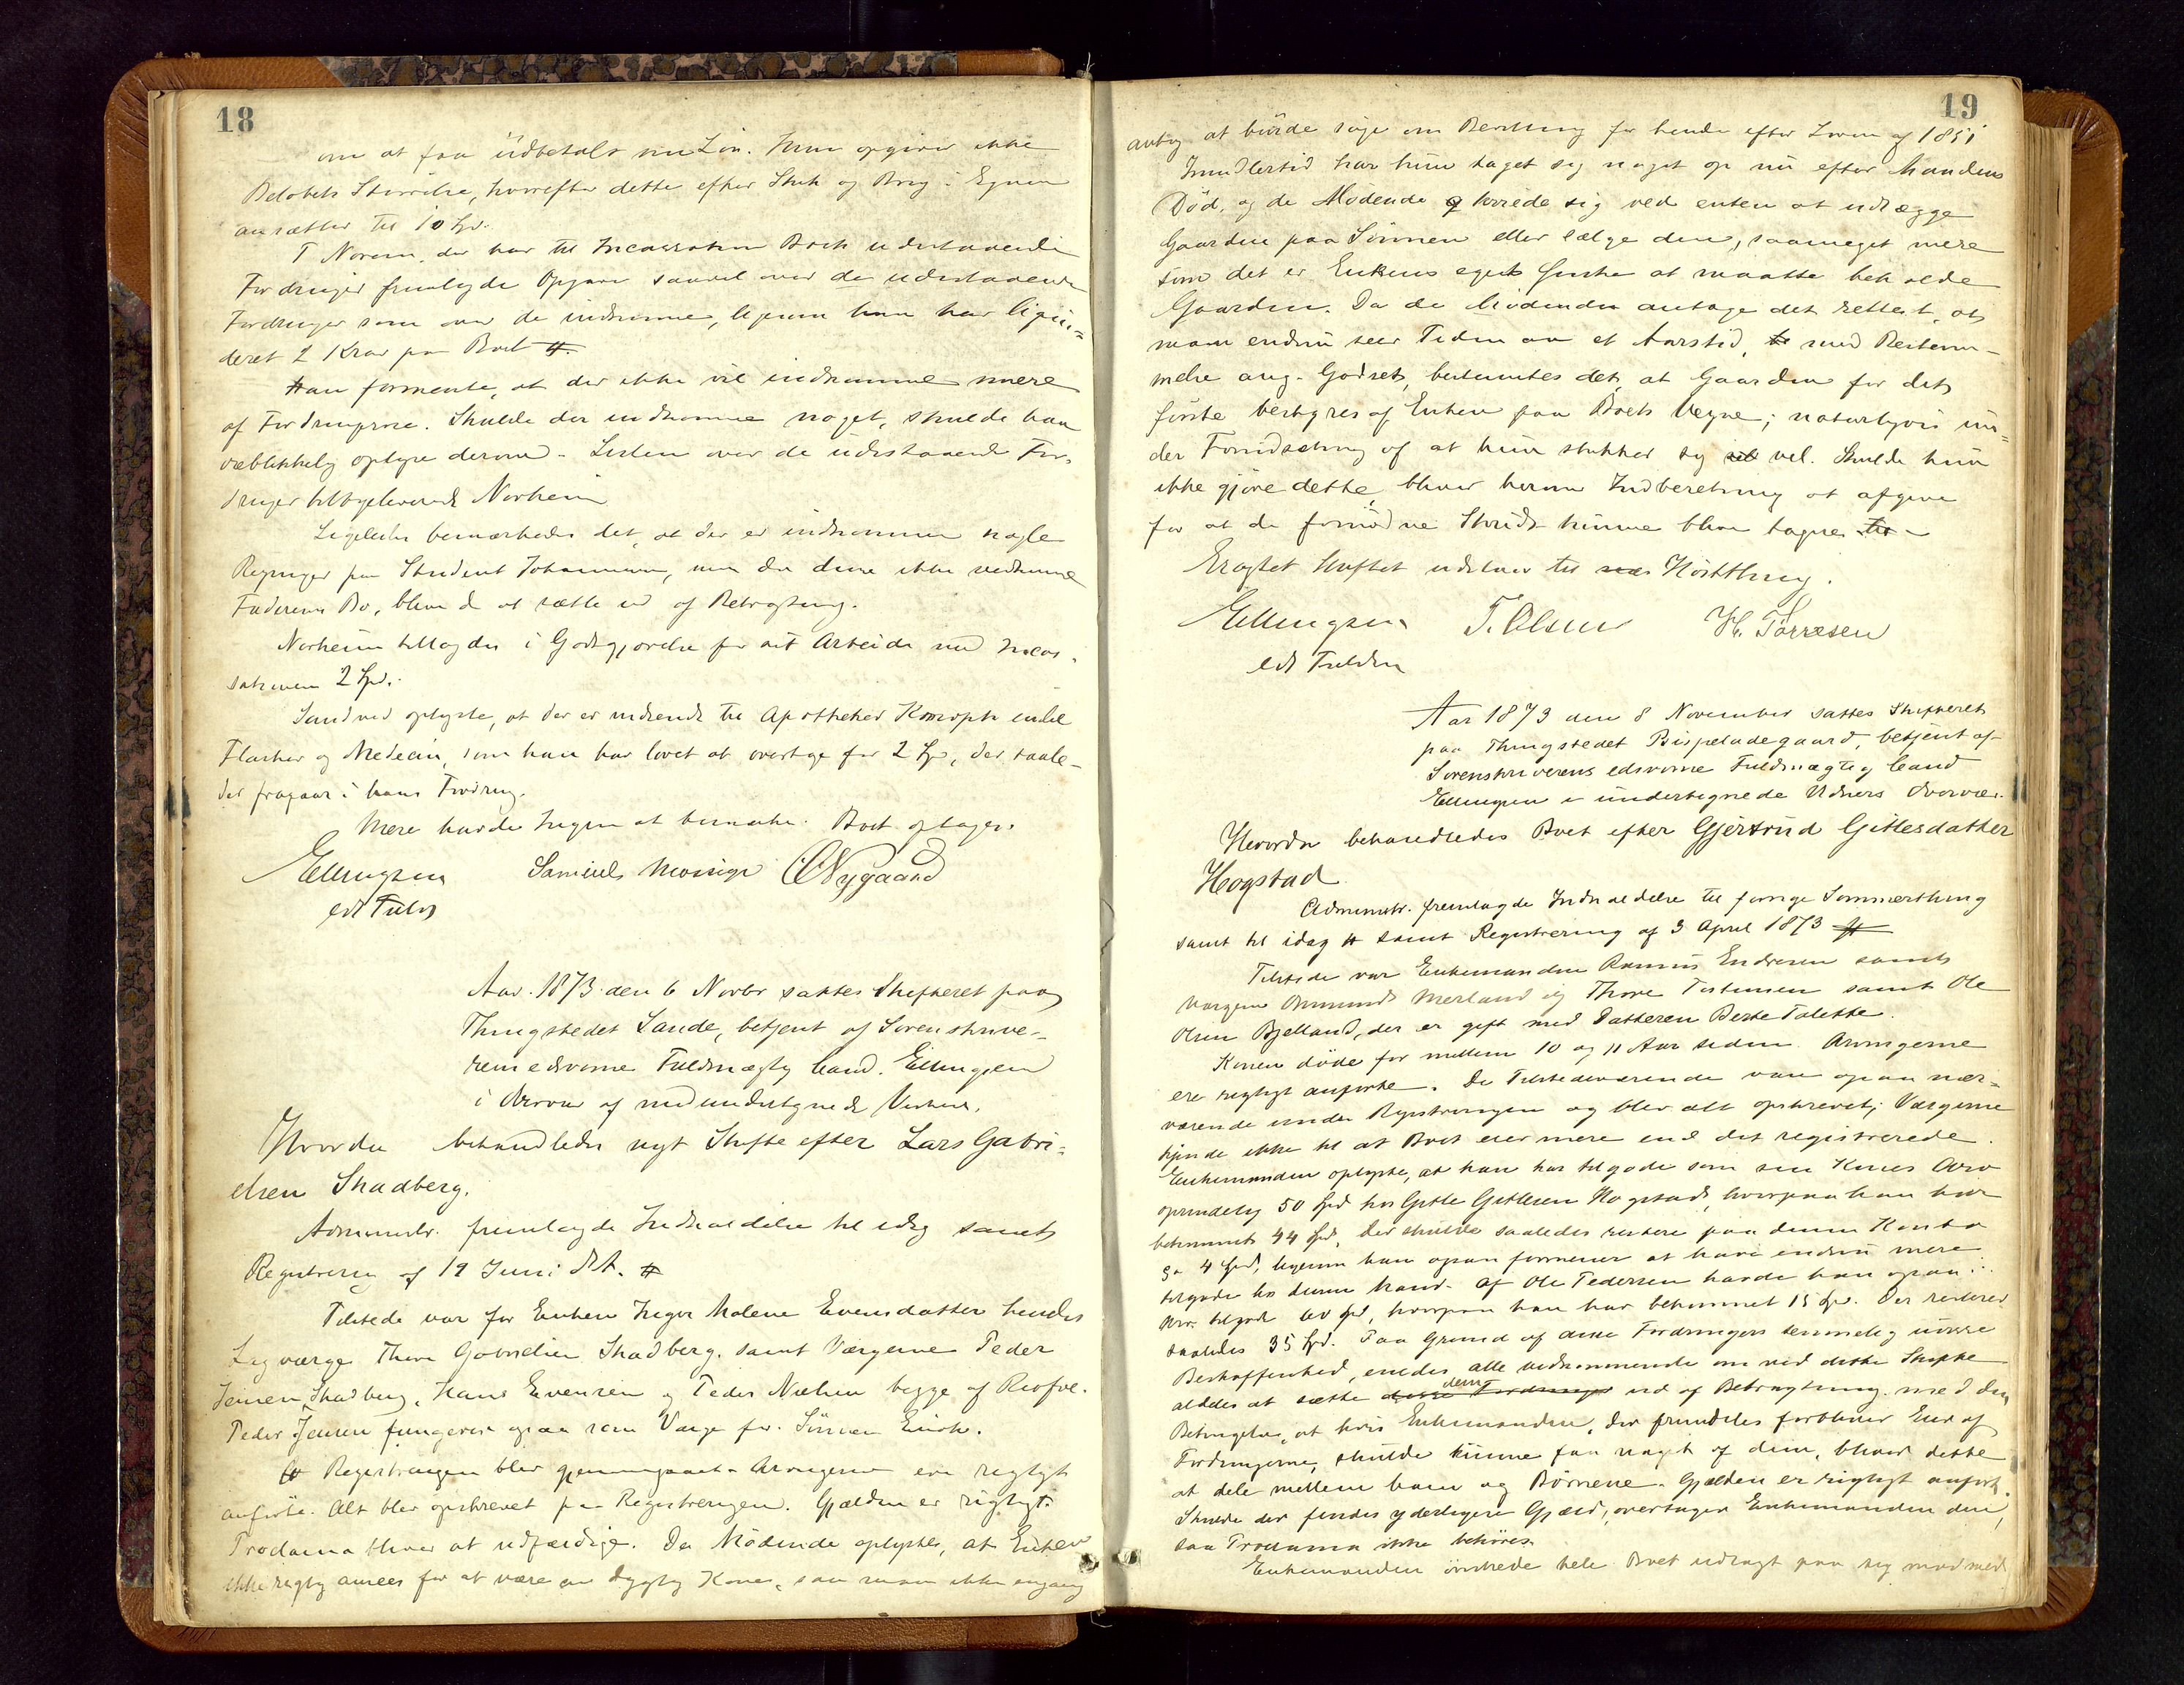 18
om at faa udbetalt sin Løn. Hun opgiver ikke
Beløbets Størrelse, hvorefter dette efter Skik og Brug i Egnen
ansættes til 10 Spd.
T Norem, der har til Incassation Boets udestaaende
Fordringer fremlagde Opgave saavel over de udestaaende
Fordringer som over de indkomne, ligesom han har liqui=
deret 2 Krav paa Boet #.
Han formente, at der ikke vil indkomme mere
af Fordringerne. Skulde der indkomme noget, skulde han
øieblikkelig oplyse derom. Listen over de udestaaende For=
dringer tilbageleverede Norheim
Ligeledes bemærkedes det, at der er indkommen nogle
Regninger paa Student Johannesen, men da disse ikke vedkomme
Faderens Bo, bliver de at sætte ud af Betragtning.
Norheim tillagdes i Godtgjørelse for sit Arbeide med Incas=
sationen 2 Spd.
Sandved oplyste, at der er indsendt til Apotheker endel
Flasker og Medecin, som han har lovet at overtage for 2 Spd, der saale-
des fragaar i hans Fordring.
Mere havde Ingen at bemærke. Boet optages.
Ellingsen Samuels Mossige Nygaard
edt Fuldm
Aar 1873 den 6 Novbr sattes Skifteret paa
Thingstedet Sande, betjent af Sorenskrive-
rens edsvorne Fuldmægtig Cand. Ellingsen
i Overvær af medundertegnede Vidner.
Hvorda behandledes nyt Skifte efter Lars Gabri=
elsen Skadberg.
Administr. fremlagde Indkaldelse til idag samt
Registrering af 19 Juni d. A. #
Tilstede var for Enken Inger Malene Evensdatter hendes
Lagværge Thore Gabrielsen Skadberg, samt Værgerne Peder
Jensen Skadberg, Hans Evensen og Peder Nielsen begge af Reofve.
Peder Jensen fungerer ogsaa som Værge for Sønnen Eirik.
Registreringen blev gjennemgaaet. Arvingerne ere rigtigt
anførte. Alt blev opskrevet paa Registreringen. Gjælden er rigtigt.
Proclama bliver at udfærdige. De Mødende oplyste, at Enken
ikke rigtig ansees for at være en dygtig Kone, saa man ikke engang
19
antog at burde søge om Bevilling for hende efter Loven af 1851
Imidlertid har hun taget sig noget op nu efter Mandens
Død, og de Mødende tvivlede sig ved enten at udlægge
Gaarden paa Sønnen eller sælge den, saameget mere
som det er Enkens eget Ønske at maatte beholde
Gaarden. Da de Mødende antage det rettest, at
man endnu seer Tiden an et Aarstid, med Bestem-
melse ang. Godset, bestemtes det, at Gaarden for det
første bestyres af Enken paa Boets Vegne; naturligvis un=
der Forudsætning af at hun skikker sig vel. Skulde hun
ikke gjøre dette, bliver herom Indberetning at afgive
for at de fornødne Skridt kunne blive tagne.
Eragtet Skiftet udstaar til Høstthing.
Ellingsen T. Olsen H. Tørresen
edt Fuldm
Aar 1873 den 8 November sattes Skifteret
paa Thingstedet Bispeladegaard, betjent af
Sorenskriverens edsvorne Fuldmægtig Cand
Ellingsen i undertegnede Vidners Overvær.
Hvorda behandledes Boet efter Gjertrud Gitlesdatter
Hogstad
Administr. fremlagde Indkaldelse til forrige Sommerthing
samt til idag # samt Registrering af 3 April 1873 #
Tilstede var Enkemanden Rasmus Endresen samt
Værgerne Osmund Merland og Thore Torkensen samt Ole
Olsen Bjelland, der er gift med Datteren Berte Tolette.
Konen døde for mellem 10 og 11 Aar siden. Arvingerne
ere rigtigt anførte. De Tilstedeværende vare ogsaa nær=
værende under Registreringen og blev alt opskrevet; Værgerne
kjende ikke til at Boet eier mere end det registrerede.
Enkemanden oplyste, at han har tilgode som sin Kones Arv
oprindelig 50 Spd hos Gitle Gitlesen Hogstad, hvorpaa han har
bekommet 44 Spd, der skulde saaledes restere paa denne Konto
ca 4 Spd, ligesom han ogsaa formener at have endnu mere
tilgode hos denne Mand. Af Ole Pedersen havde han ogsaa i
Arv tilgode 50 Spd, hvorpaa han har bekommet 15 Spd. Der resterer
saaledes 35 Spd. Paa Grund af disse Fordringers temmelig usikre
Beskaffenhed, enedes alle vedkommende om ved dette Skifte
aldeles at sætte dem ud af Betragtning med den
Betingelse, at hvis Enkemanden, der fremdeles forbliver Eier af
Fordringerne, skulde kunne faa noget af dem, bliver dette
at dele mellem ham og Børnene. Gjælden er rigtigt anført.
Skulde der findes yderligere Gjæld, overtager Enkemanden den,
saa Proclama ikke behøves.
Enkemanden ønskede hele Boet udlagt paa sig mod med